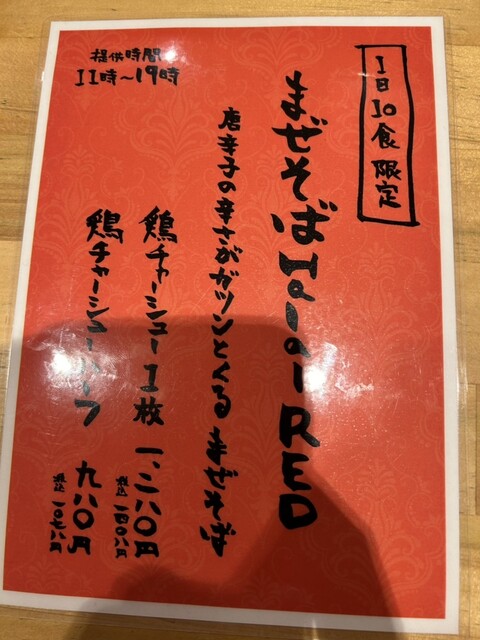 1日10食限定
まぜそばHalal RED
唐辛子の辛さがガツンとくる まぜそば
鶏チャーシュー1枚 一、二八〇円
税込 一四〇八円
鶏チャーシューハーフ 九八〇円
税込 一〇七八円
提供時間
11時〜19時